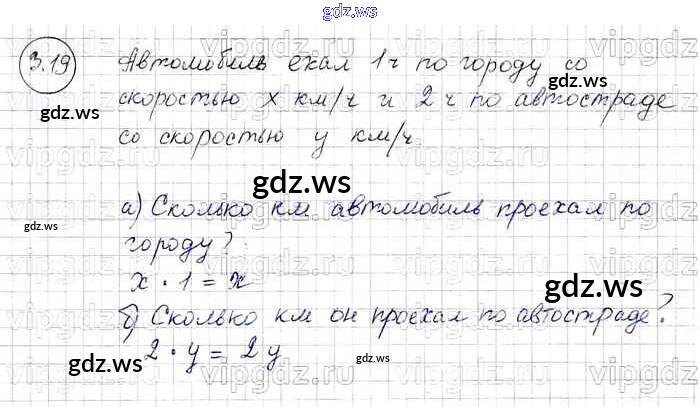 gdz.ws
3.19 Автомобиль ехал 1 ч по городу со
скоростью x км/ч и 2 ч по автостраде
со скоростью y км/ч.
а) Сколько км автомобиль проехал по
городу?
x · 1 = x
б) Сколько км он проехал по автостраде?
2 · y = 2y
gdz.ws
gdz.ws
gdz.ws
gdz.ws
gdz.ws
gdz.ws
gdz.ws
gdz.ws